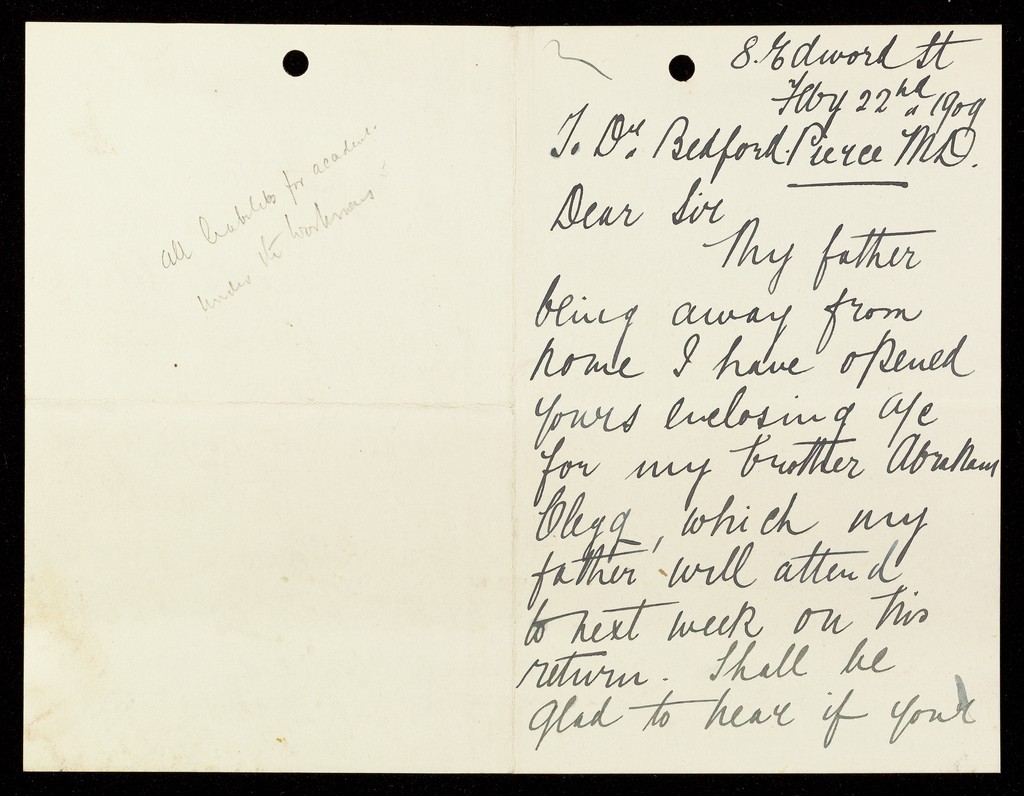 all liabilities for academ
under the Workmens
8. Edword St
Feby 22nd 1909
To Dr. Bedford Pierce MD.
Dear Sir
My father
being away from
home I have opened
yours enclosing a/c
for my brother Abraham
Clegg, which my
father will attend
to next week on his
return. Shall be
glad to hear if your